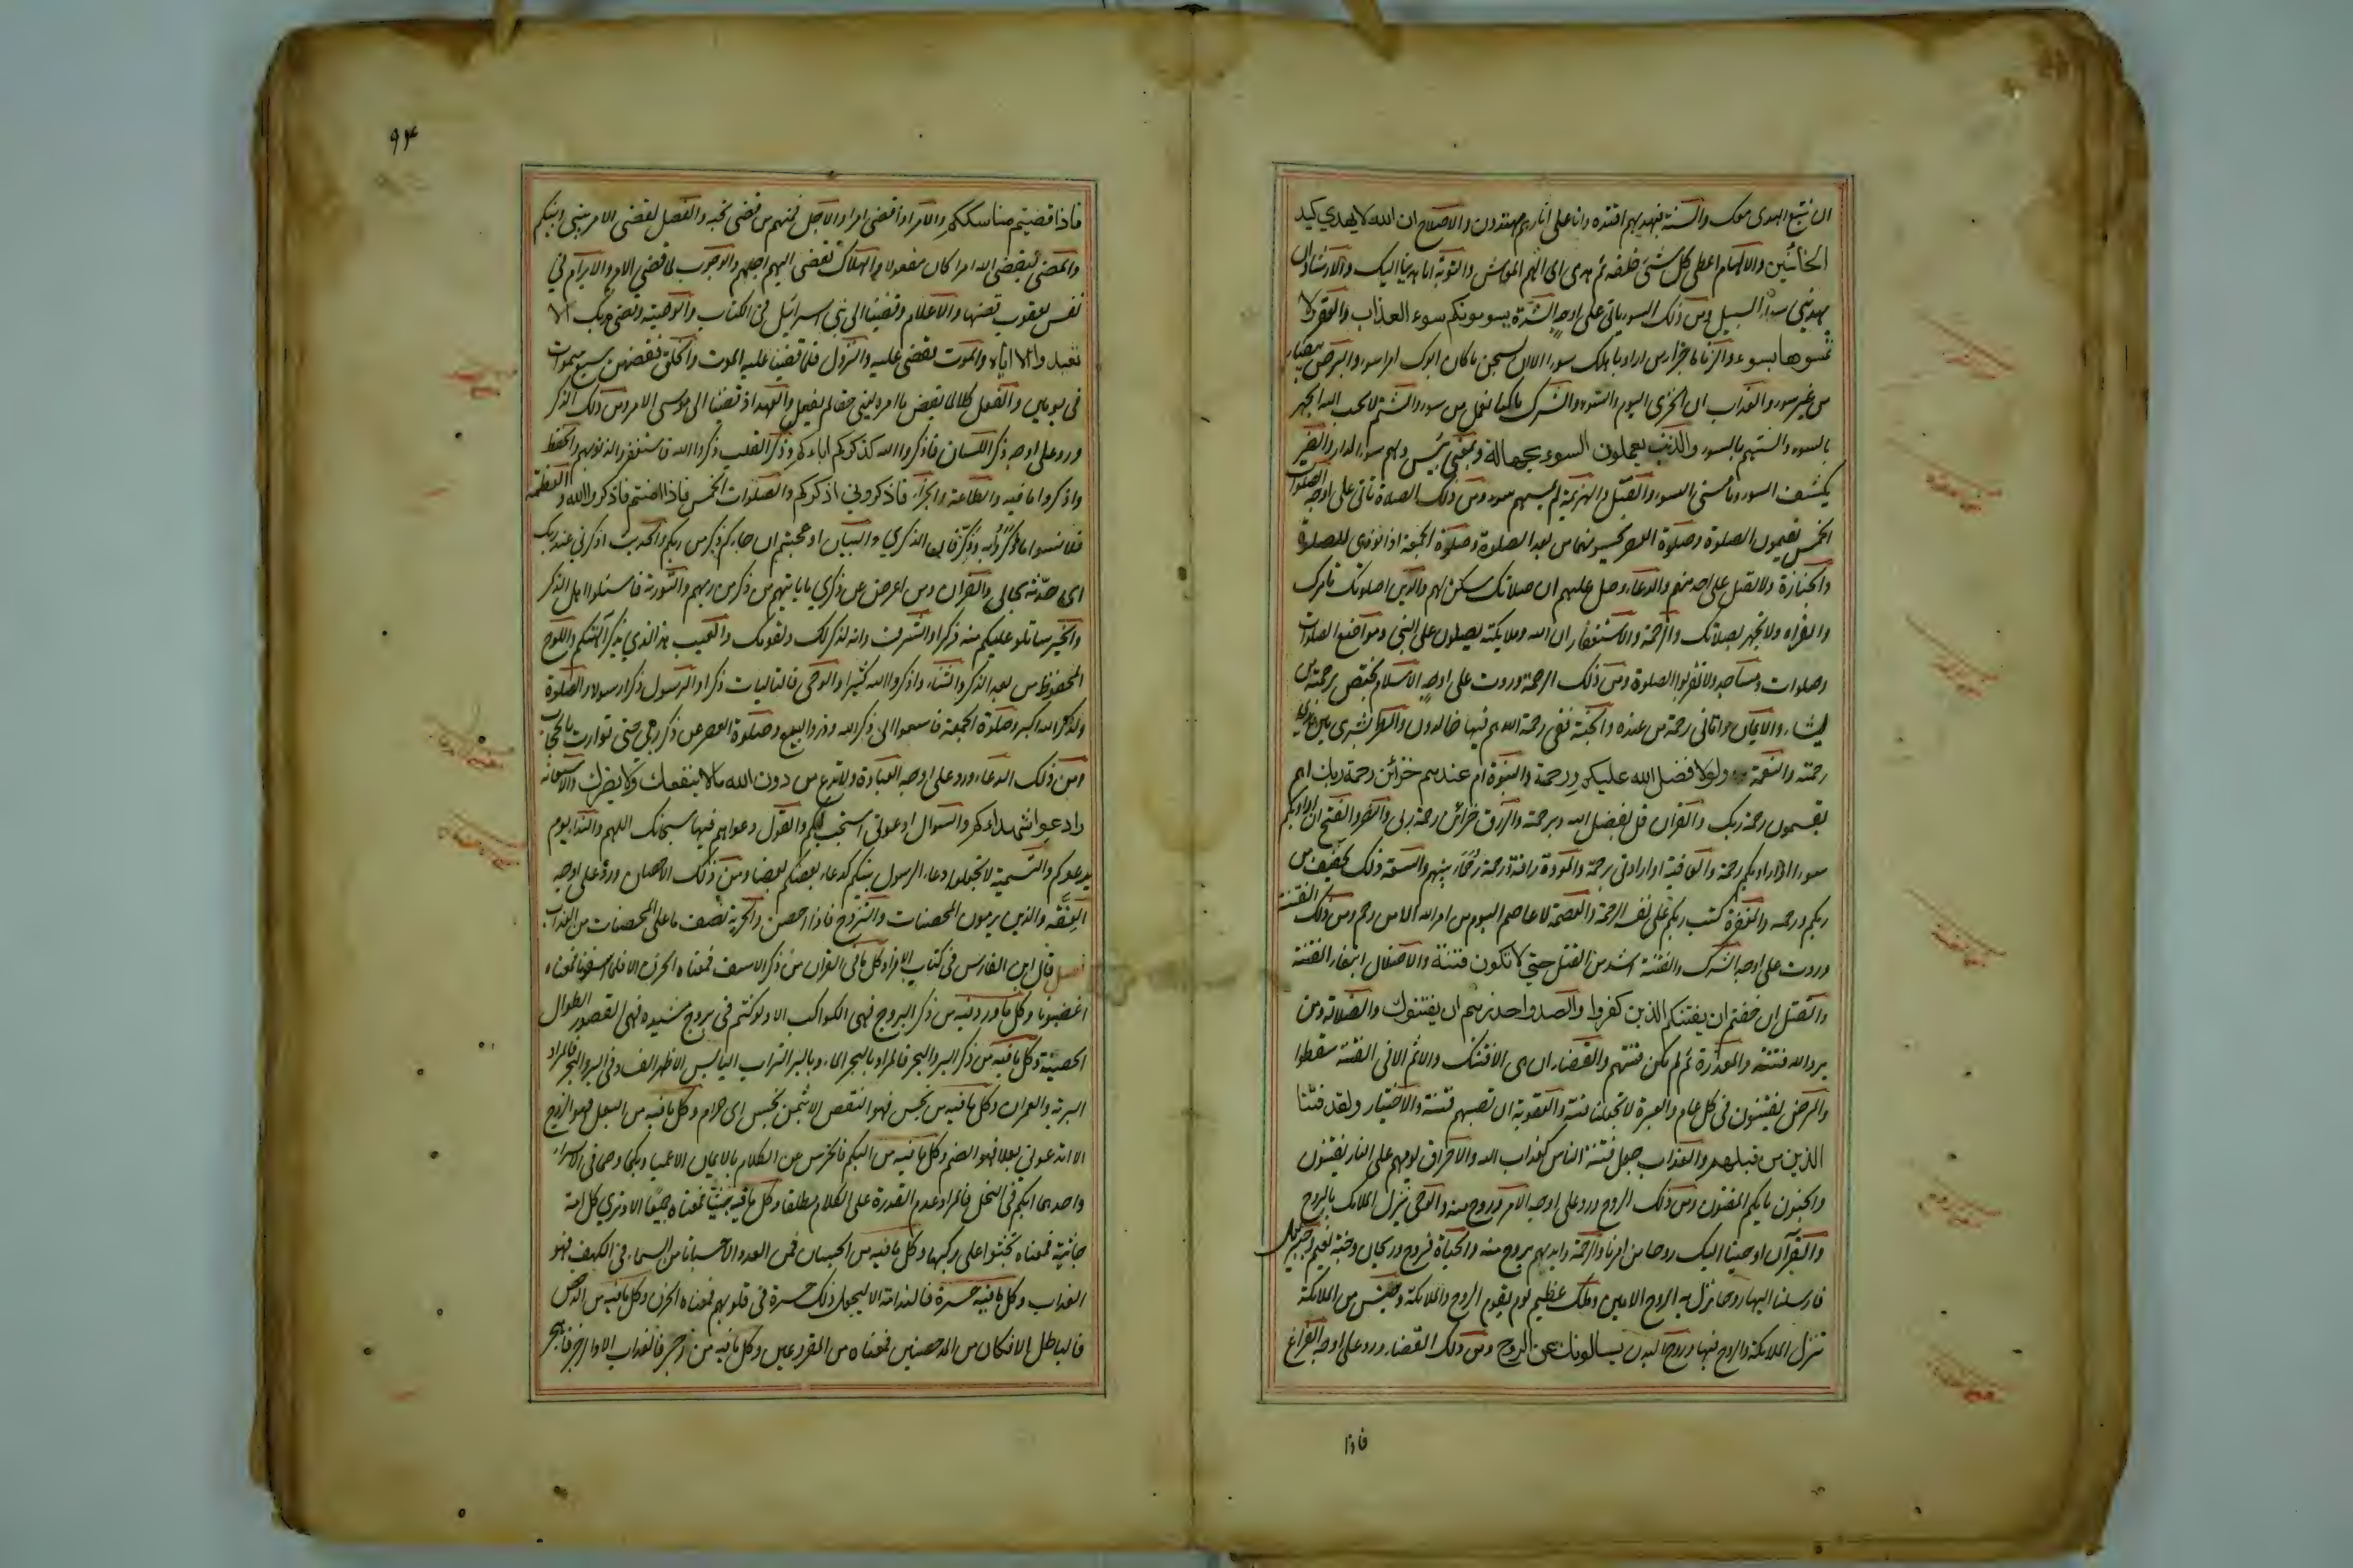 ان نتبع الهدى معك والسنة فبهديهم اقتده وانا على اثارهم مهتدون والاصلاح ان الله لا يهدي كيد
الخائنين والالهام اعطى كل شئ خلقه ثم هدى اى الهم المعاش والتوبة انا هدنا اليك والارشاد ان
يهديني سواء السبيل ومن ذلك السوء ياتي على اوجه الشدة يسومونكم سوء العذاب والعقر ولا
تمسوها بسوء والزنا ما جزاء من اراد باهلك سوءا الا ان يسجن ما كان ابوك امرا سوء والبرص بيضاء
من غير سوء والعذاب ان الخزى اليوم والسوء والشرك ما كنا نعمل من سوء والشتم لا يحب الله الجهر
بالسوء والسنتهم بالسوء والذنب يعملون السوء بجهالة وبمعنى بئس ولهم سوء الدار والضر
يكشف السوء وما مسنى السوء والقتل والهزيمة لم يمسسهم سوء ومن ذلك الصلاة تاتى على اوجه الصلوات
الخمس يقيمون الصلوة وصلوة العصر تحبسونهما من بعد الصلوة وصلوة الجمعة اذا نودى للصلوة
والجنازة ولا تصل على احد منهم والدعاء وصل عليهم ان صلاتك سكن لهم والدين اصلوتك تامرك
والقراءة ولا تجهر بصلاتك والرحمة والاستغفار ان الله وملايكته يصلون على النبي ومواضع الصلوات
وصلوات ومساجد ولا تقربوا الصلوة ومن ذلك الرحمة وردت على اوجه الاسلام يختص برحمته من
يشاء والايمان واتاني رحمة من عنده والجنة ففى رحمة الله هم فيها خالدون والمطر بشرى بين يدى
رحمته والنعمة ولولا فضل الله عليكم ورحمة والنبوة ام عندهم خزائن رحمة ربك اهم
يقسمون رحمة ربك والقران قل بفضل الله وبرحمته والرزق خزائن رحمة ربى والنصر والفتح ان اراد بكم
سوءا او اراد بكم رحمة والعافية او ارادنى برحمة والمودة رافة ورحمة رحماء بينهم والسعة ذلك تخفيف من
ربكم ورحمة والمغفرة كتب ربكم على نفسه الرحمة والعصمة لا عاصم اليوم من امر الله الا من رحم ومن ذلك الفتنة
وردت على اوجه الشرك والفتنة اشد من القتل حتي لا تكون فتنة والاضلال ابتغاء الفتنة
والقتل ان خفتم ان يفتنكم الذين كفروا والصد واحذرهم ان يفتنوك والضلالة ومن
يرد الله فتنته والمعذرة ثم لم تكن فتنتهم والقضاء ان هى الا فتنتك والاثم الا فى الفتنة سقطوا
والمرض يفتنون فى كل عام والعبرة لا تجعلنا فتنة والعقوبة ان تصيبهم فتنة والاختبار ولقد فتنا
الذين من قبلهم والعذاب جعل فتنة الناس كعذاب الله والاحراق يوم هم على النار يفتنون
والجنون بايكم المفتون ومن ذلك الروح ورد على اوجه الامر وروح منه والوحى ينزل الملائك بالروح
والقرآن اوحينا اليك روحا من امرنا والرحمة وايدهم بروح منه والحياة فروح وريحان وجنة نعيم وجبريل
فارسلنا اليها روحنا نزل به الروح الامين وملك عظيم يوم يقوم الروح والملائكة وجنس من الملائكة
تنزل الملائكة والروح فيها وروح البدن يسالونك عن الروح ومن ذلك القضاء ورد على اوجه الفراغ
فاذا
٩٣
فاذا قضيتم مناسككم والامر اذا قضى امرا والاجل فمنهم من قضى نحبه والفصل لقضى الامر بينى وبينكم
والمضى ليقضى الله امرا كان مفعولا والهلاك لقضى اليهم اجلهم والوجوب لما قضى الامر والابرام في
نفس يعقوب قضيها والاعلام وقضينا الى بنى اسرائيل فى الكتاب والوصية وقضى ربك الا
تعبدوا الا اياه والموت فقضى عليه والنزول فلما قضينا عليه الموت والخلق فقضاهن سبع سموات
فى يومين والفعل كلا لما يقض ما امره يعنى حقا لم يفعل والعهد اذ قضينا الى موسى الامر ومن ذلك الذكر
ورد على اوجه ذكر اللسان فاذكروا الله كذكركم اباءكم وذكر القلب ذكروا الله فاستغفروا لذنوبهم والحفظ
واذكروا ما فيه والطاعة والجزاء فاذكروني اذكركم والصلوات الخمس فاذا امنتم فاذكروا الله والعظة
فلما نسوا ما ذكروا به وذكر فان الذكري والبيان او عجبتم ان جاءكم ذكر من ربكم والحديث اذكرني عند ربك
اى حدثه بحالى والقران ومن اعرض عن ذكري ما ياتيهم من ذكر من ربهم والتورية فاسئلوا اهل الذكر
والخبر ساتلو عليكم منه ذكرا والشرف وانه لذكر لك ولقومك والعيب اهذا الذي يذكر آلهتكم واللوح
المحفوظ من بعد الذكر والثناء واذكروا الله كثيرا والوحى فالتاليات ذكرا والرسول ذكرا رسولا والصلوة
ولذكر الله اكبر وصلوة الجمعة فاسعوا الى ذكر الله وذروا البيع وصلوة العصر عن ذكر ربى حتى توارت بالحجاب
ومن ذلك الدعاء ورد على اوجه العبادة ولا تدع من دون الله ما لا ينفعك ولا يضرك والاستعانة
وادعوا شهداءكم والسوال ادعونى استجب لكم والقول دعواهم فيها سبحانك اللهم والنداء يوم
يدعوكم والتسمية لا تجعلوا دعاء الرسول بينكم كدعاء بعضكم بعضا ومن ذلك الاحصان ورد على اوجه
العفة والذين يرمون المحصنات والتزوج فاذا احصن والحرية نصف ما على المحصنات من العذاب
فصل قال ابن الفارس فى كتاب الافراد كل ما فى القران من ذكر الاسف فمعناه الحزن الا فلما اسفونا فمعناه
اغضبونا وكل ما ورد فيه من ذكر البروج فهى الكواكب الا ولو كنتم فى بروج مشيدة فهى القصور الطوال
الحصينة وكل ما فيه من ذكر البر والبحر فالمراد بالبحر الماء وبالبر التراب اليابس الا ظهر الفساد فى البر والبحر فالمراد
البرية والعمران وكل ما فيه من بخس فهو النقص الا بثمن بخس اى حرام وكل ما فيه من البعل فهو الزوج
الا اتدعون بعلا فهو الصنم وكل ما فيه من البكم فالخرس عن الكلام بالايمان الا عميا وبكما وصما فى الاسراء
واحدهما ابكم فى النحل فالمراد عدم القدرة على الكلام مطلقا وكل ما فيه جثيا فمعناه جميعا الا وترى كل امة
جاثية فمعناه تجثوا على ركبها وكل ما فيه من الحسبان فمن العدد الا حسبانا من السماء فى الكهف فهو
العذاب وكل ما فيه حسرة فالندامة الا ليجعل الله ذلك حسرة فى قلوبهم فمعناه الحزن وكل ما فيه من الدحض
فالباطل الا فكان من المدحضين فمعناه من المقروعين وكل ما فيه من رجز فالعذاب الا والرجز فاهجر